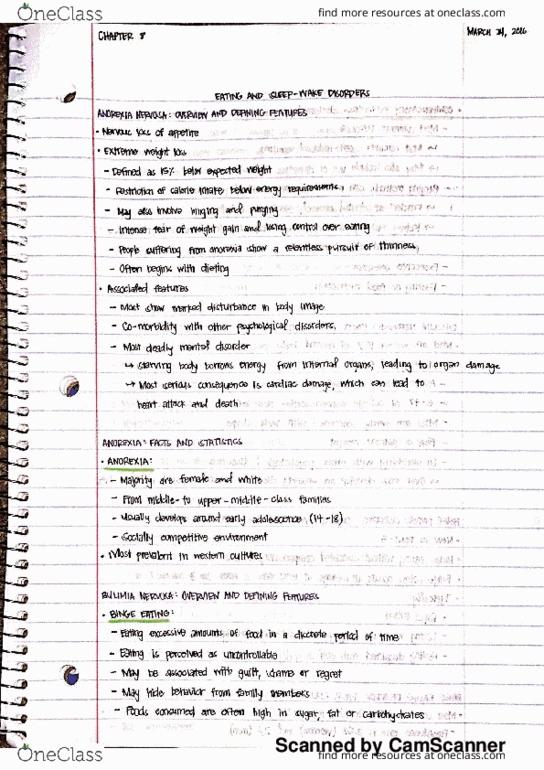 OneClass
find more resources at oneclass.com
CHAPTER 8
MARCH 24, 2016
EATING AND SLEEP-WAKE DISORDERS
ANOREXIA NERVOSA: OVERVIEW AND DEFINING FEATURES
• Nervous loss of appetite
• Extreme weight loss
– Defined as 15% below expected weight
– Restriction of calorie intake below energy requirements
– May also involve binging and purging
– Intense fear of weight gain and losing control over eating
– People suffering from anorexia show a relentless pursuit of thinness
– Often begins with dieting
• Associated features
– Most show marked disturbance in body image
– Co-morbidity with other psychological disorders
– Most deadly mental disorder
↳ Starving body borrows energy from internal organs, leading to organ damage
↳ Most serious consequence is cardiac damage, which can lead to
heart attack and death
ANOREXIA: FACTS AND STATISTICS
• ANOREXIA:
– Majority are female and white
– From middle- to upper-middle-class families
– Usually develops around early adolescence (14-18)
– Socially competitive environment
• Most prevalent in western cultures
BULIMIA NERVOSA: OVERVIEW AND DEFINING FEATURES
• BINGE EATING:
– Eating excessive amounts of food in a discrete period of time
– Eating is perceived as uncontrollable
– May be associated with guilt, shame or regret
– May hide behavior from family members
– Foods consumed are often high in sugar, fat or carbohydrates
Scanned by CamScanner
OneClass
find more resources at oneclass.com